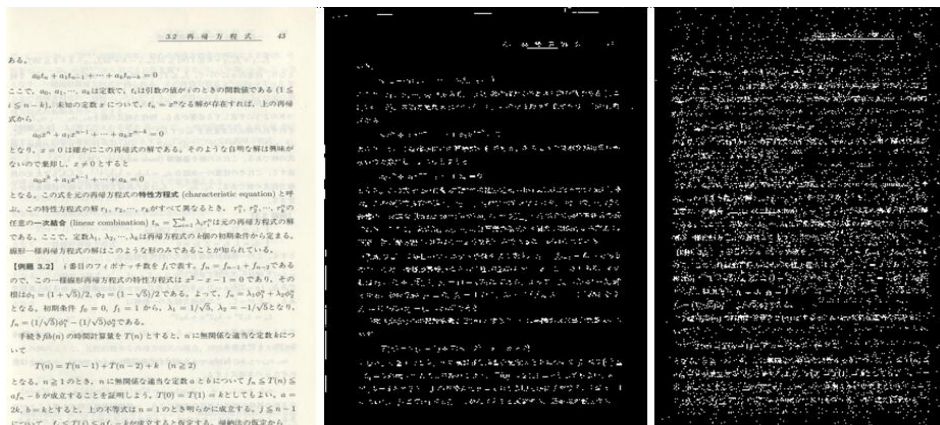 3.2 再帰方程式 43
ある。
a₀tₙ + a₁tₙ₋₁ + ⋯ + aₖtₙ₋ₖ = 0
ここで、a₀, a₁, ⋯, aₖは定数で、tᵢは引数の値が i のときの関数値である (1 ≦
i ≦ n − k)。未知の定数 x について、tₙ = xⁿなる解が存在すれば、上の再帰
式から
a₀xⁿ + a₁xⁿ⁻¹ + ⋯ + aₖxⁿ⁻ᵏ = 0
となり、x = 0 は確かにこの再帰式の解である。そのような自明な解は興味が
ないので棄却し、x ≠ 0 とすると
a₀xᵏ + a₁xᵏ⁻¹ + ⋯ + aₖ = 0
となる。この式を元の再帰方程式の特性方程式 (characteristic equation) と呼
ぶ。この特性方程式の解 r₁, r₂, ⋯, rₖがすべて異なるとき、r₁ⁿ, r₂ⁿ, ⋯, rₖⁿの
任意の一次結合 (linear combination) tₙ = ∑ᵢ₌₁ᵏ λᵢrᵢⁿは元の再帰方程式の解
である。ここで、定数λ₁, λ₂, ⋯, λₖは再帰方程式の k個の初期条件から定まる。
線形一様再帰方程式の解はこのような形のみであることが知られている。
【例題 3.2】 i 番目のフィボナッチ数を fᵢで表す。fₙ = fₙ₋₁ + fₙ₋₂である
ので、この一様線形再帰方程式の特性方程式は x² − x − 1 = 0 であり、その
根はφ₁ = (1 + √5)/2, φ₂ = (1 − √5)/2 である。よって、fₙ = λ₁φ₁ⁿ + λ₂φ₂ⁿ
となる。初期条件 f₀ = 0, f₁ = 1 から、λ₁ = 1/√5, λ₂ = −1/√5となり、
fₙ = (1/√5)φ₁ⁿ − (1/√5)φ₂ⁿである。
手続きfib(n) の時間計算量を T(n) とすると、n に無関係な適当な定数 kにつ
いて
T(n) = T(n − 1) + T(n − 2) + k (n ≧ 2)
となる。n ≧ 1 のとき、n に無関係な適当な定数 a と b について fₙ ≦ T(n) ≦
afₙ − b が成立することを証明しよう。T(0) = T(1) = kとしてもよい。a =
2k, b = kとすると、上の不等式は n = 1 のとき明らかに成立する。j ≦ n − 1
について、fⱼ ≦ T(j) ≦ afⱼ − kが成立すると仮定する。帰納法の仮定から